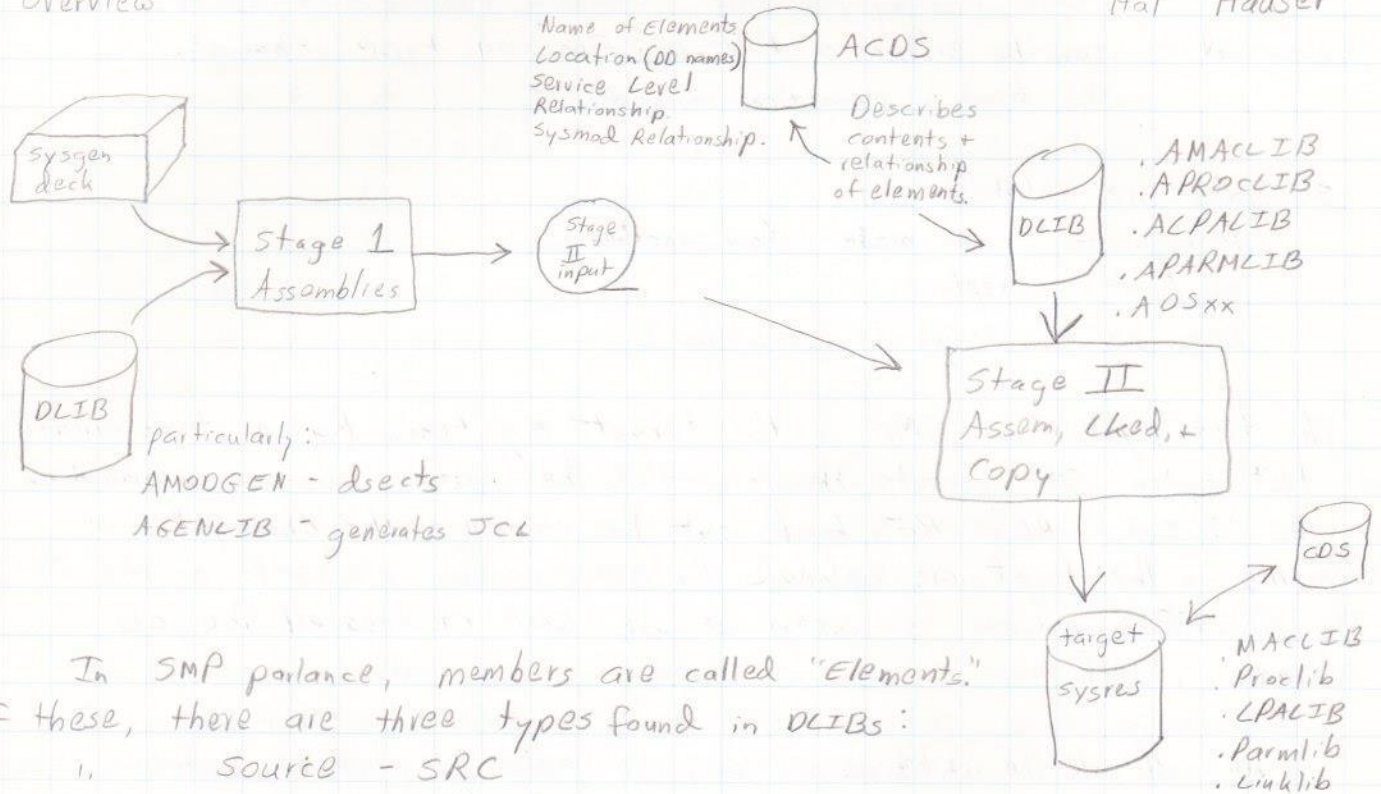 Overview
Hal Hauser
Name of Elements
Location (DD names)
Service Level
Relationship.
Sysmod Relationship.
ACDS
Describes
contents +
relationship
of elements.
sysgen
deck
Stage 1
Assemblies
Stage
II
input
DLIB
. AMACLIB
. APROCLIB
. ALPALIB
. APARMLIB
. AOSxx
DLIB
particularly:
AMODGEN - dsects
AGENLIB - generates JCL
Stage II
Assem, Lked, +
Copy
CDS
target
sysres
. MACLIB
. Proclib
. LPALIB
. Parmlib
. Linklib
In SMP parlance, members are called "Elements."
these, there are three types found in DLIBs:
1. Source - SRC